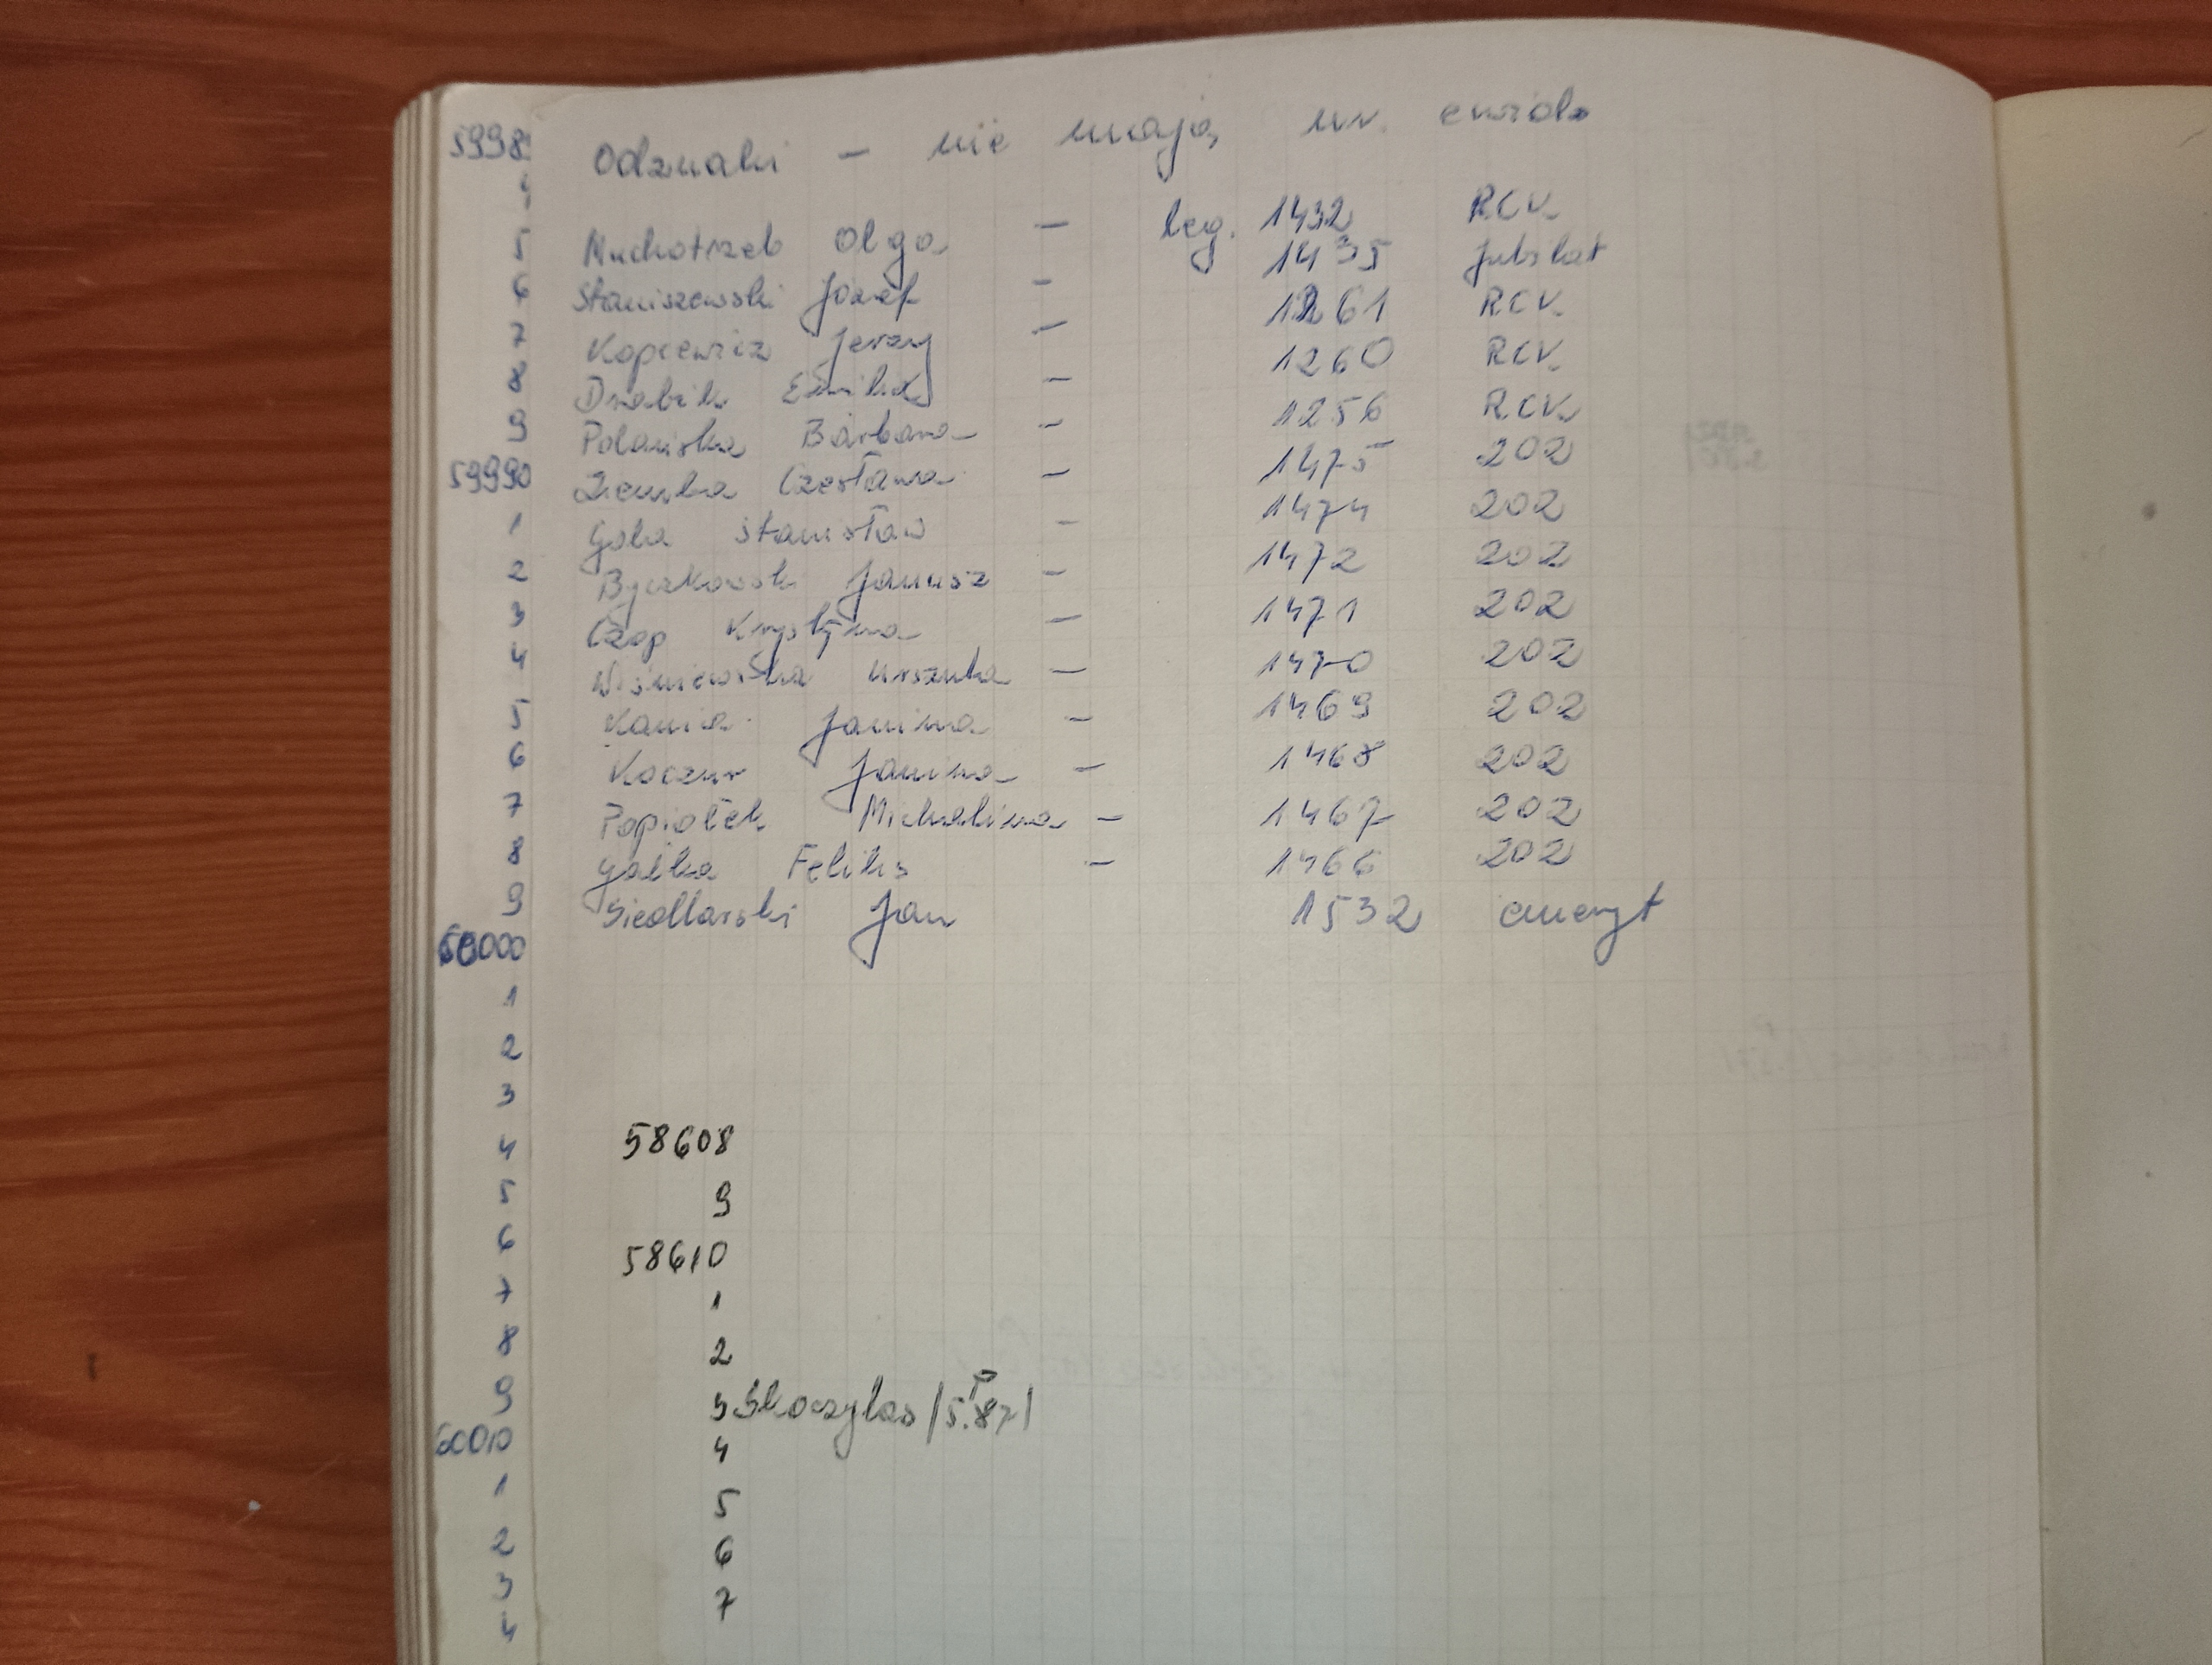 Odznaki - nie mają nr. ewid.
Muchotrzeb Olga - leg. 1432 RCV.
Staniszewski Józef - 1435 Jubilat
Kopcewicz Jerzy - 1261 RCV.
Drabik Emilia - 1260 RCV.
Polańska Barbara - 1256 RCV.
Ziemba Czesława - 1475 202
Gola Stanisław - 1474 202
Byczkowski Janusz - 1472 202
Czop Krystyna - 1471 202
Wiśniewska Urszula - 1470 202
Kania Janina - 1469 202
Koczur Janina - 1468 202
Popiołek Michalina - 1467 202
Gałka Feliks - 1466 202
Siedlarski Jan 1532 emeryt
58608
9
58610
1
2
3 Skoczylas /5.87/
4
5
6
7
5998
4
5
6
7
8
9
59990
1
2
3
4
5
6
7
8
9
60000
1
2
3
4
5
6
7
8
9
60010
1
2
3
4